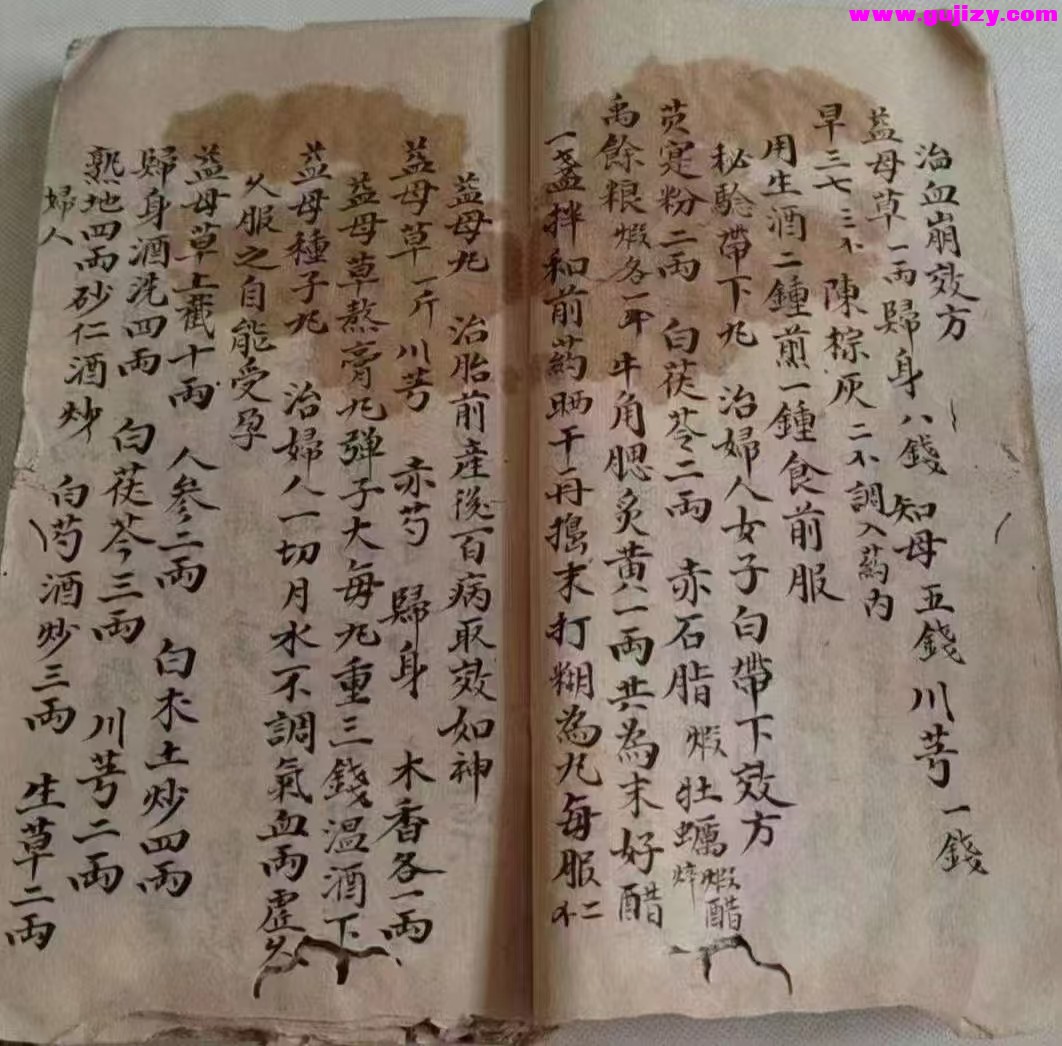 www.gujizy.com
治血崩效方
益母草一兩歸身八錢 知母五錢川芎一錢
早三七三不 陳棕灰二不調入藥內
用生酒二鍾煎一鍾食前服
秘驗帶下丸 治婦人女子白帶下效方
芡寔粉二兩 白茯苓二兩 赤石脂 煆牡蠣煆醋焠
禹餘粮煆各一兩 牛角腮炙黃一兩共為末好醋
一盞拌和前藥晒干再搗末打糊為丸每服二不
益母丸 治胎前產後百病取效如神
益母草一斤 川芎 赤芍 歸身 木香各一兩
益母草熬膏丸彈子大每丸重三錢溫酒下
益母種子丸 治婦人一切月水不調氣血兩虛久
久服之自能受孕
益母草上截十兩 人參二兩 白朮土炒四兩
歸身酒洗四兩 白茯苓三兩 川芎二兩
熟地四兩砂仁酒炒 白芍酒炒三兩 生草二兩
婦人